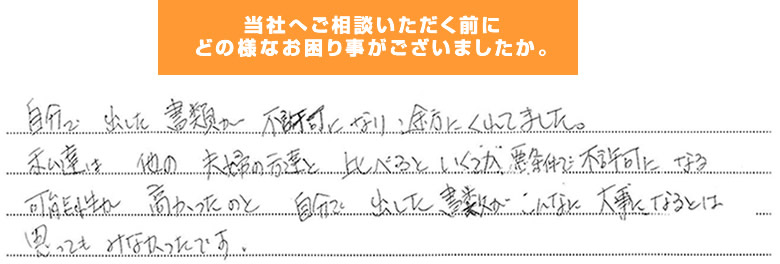 当社へご相談いただく前に
どの様なお困り事がございましたか。
自分で 出した 書類が 不許可になり、途方にくれてました。
私達は 他の 夫婦の方達と 比べると いくつか 悪条件で 不許可に なる
可能性が 高かったのと 自分で 出した 書類が こんなに 大事になるとは
思っても みなかったです。